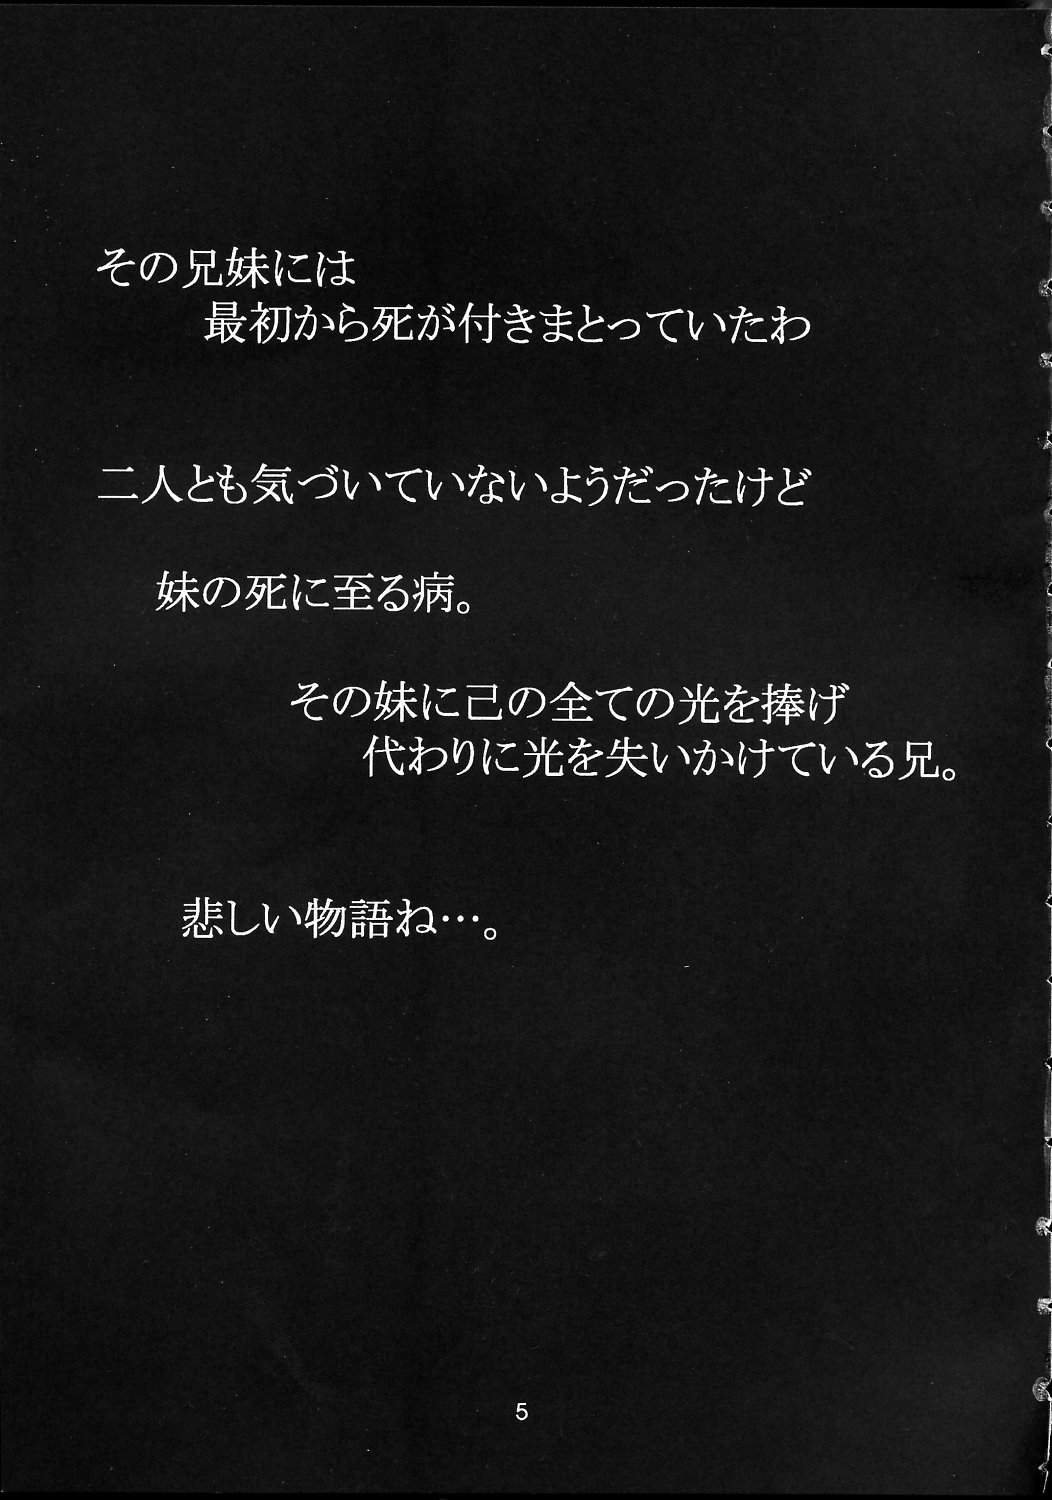 その兄妹には
最初から死が付きまとっていたわ
二人とも気づいていないようだったけど
妹の死に至る病。
その妹に己の全ての光を捧げ
代わりに光を失いかけている兄。
悲しい物語ね…。
5